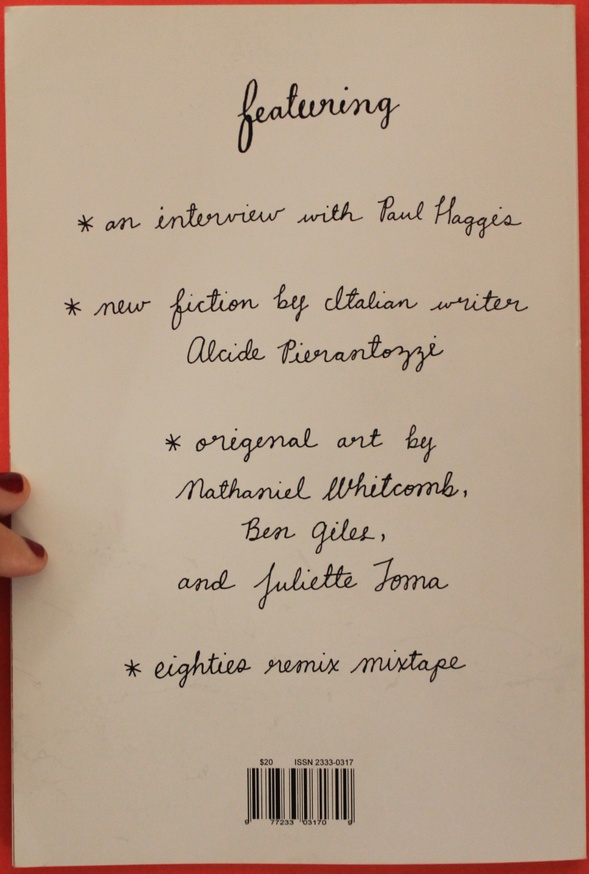 featuring
* an interview with Paul Haggis
* new fiction by Italian writer
Alcide Pierantozzi
* original art by
Nathaniel Whitcomb,
Ben Giles,
and Juliette Toma
* eighties remix mixtape
$20 ISSN 2333-0317
9 77233 03170 9